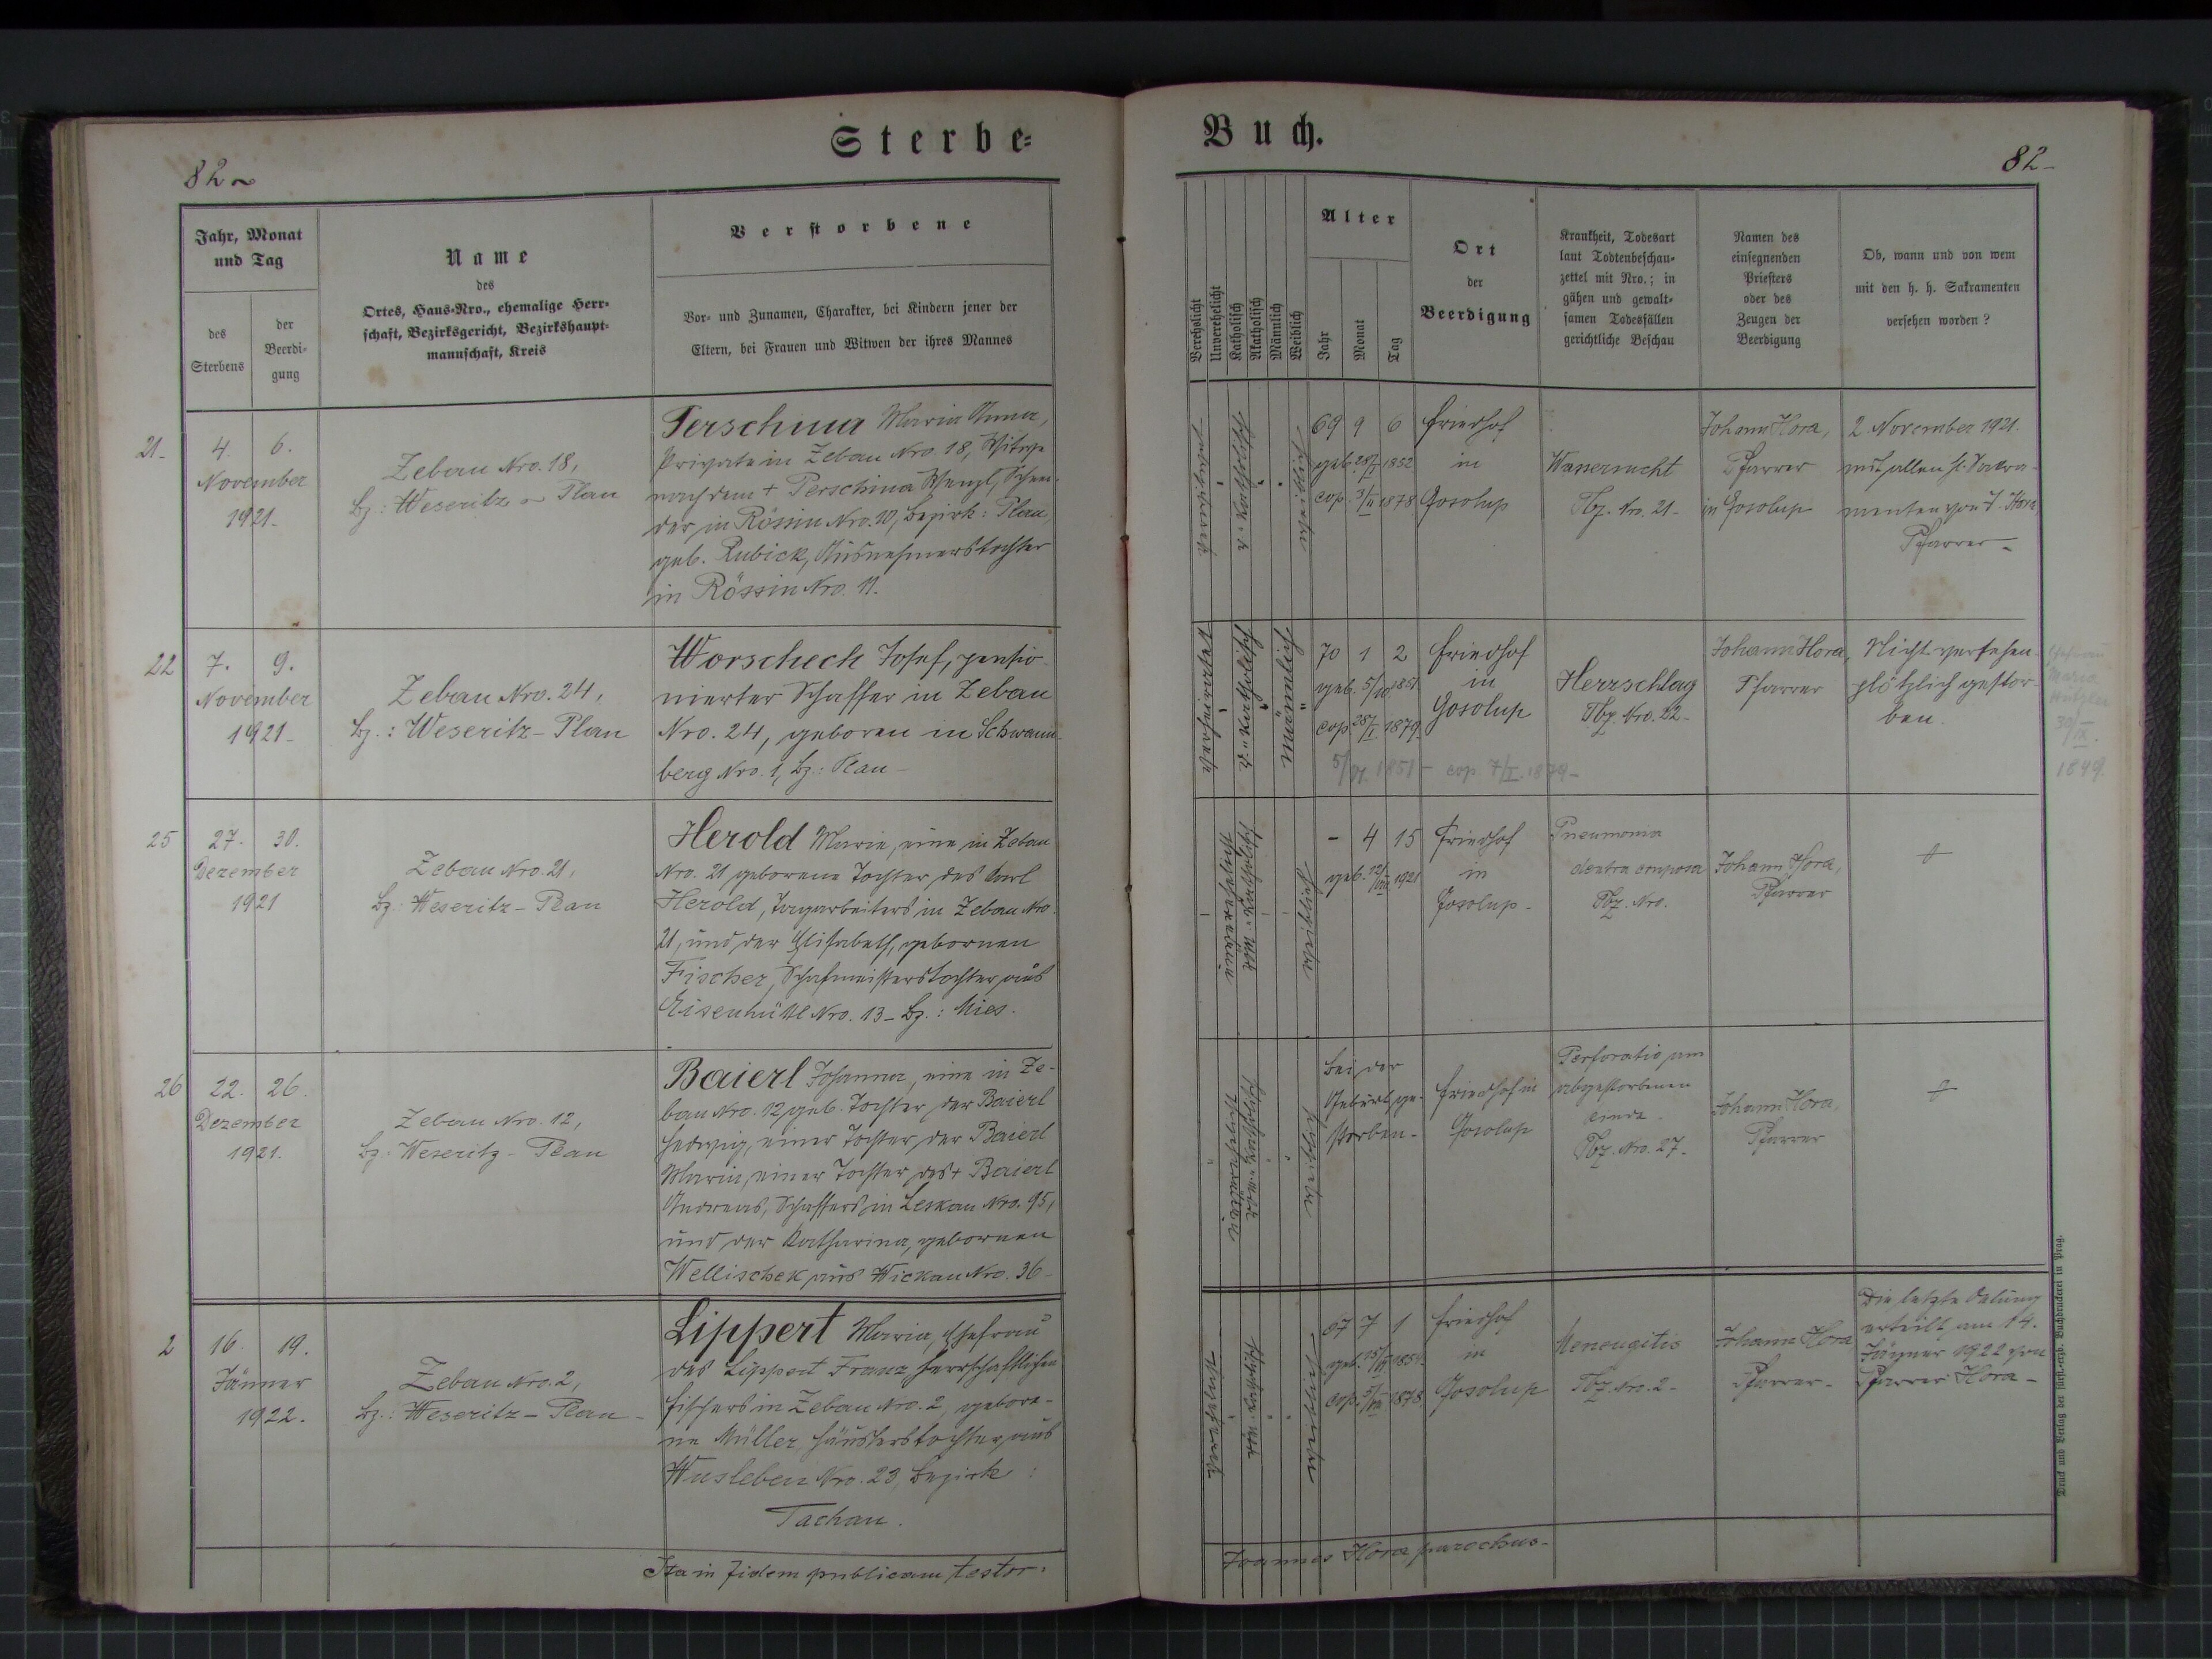 Sterbe=
Buch.
82
82
Jahr, Monat
und Tag
des
Sterbens
der
Beerdi-
gung
Name
des
Ortes, Haus-Nro., ehemalige Herr-
schaft, Bezirksgericht, Bezirkshaupt-
mannschaft, Kreis
Verstorbene
Vor- und Zunamen, Charakter, bei Kindern jener der
Eltern, bei Frauen und Witwen der ihres Mannes
Verehelicht
Unverehelicht
Katholisch
Akatholisch
Männlich
Weiblich
Alter
Jahr
Monat
Tag
Ort
der
Beerdigung
Krankheit, Todesart
laut Todtenbeschau-
zettel mit Nro.; in
gähen und gewalt-
samen Todesfällen
gerichtliche Beschau
Namen des
einsegnenden
Priesters
oder des
Zeugen der
Beerdigung
Ob, wann und von wem
mit den h. h. Sakramenten
versehen worden?
21-
4. 6.
November
1921-
Zebau Nro. 18,
Bz: Weseritz - Plan
Perschina Maria Anna,
Private in Zebau Nro. 18, Witwe
nach dem + Perschina Wenzl,
in Rössin Nro. 10, Bezirk: Plan,
geb. Kubick, Ausnehmerstochter
in Rössin Nro. 11.
verheiratet
katholisch
weiblich
69 9 6
geb. 28/I 1852
cop. 3/II 1878
Friedhof
in
Gosolup
Wassersucht
Tbz. Nro. 21-
Johann Hora,
Pfarrer
in Gosolup
2. November 1921.
mit allen hl. Sakra-
menten von J. Hora,
Pfarrer-
22
7. 9.
November
1921-
Zebau Nro. 24,
Bz.: Weseritz-Plan
Worschech Josef, pensio-
nierter Schaffer in Zebau
Nro. 24, geboren in Schwam-
berg Nro. 1, Bz: Plan-
verheiratet
katholisch
männlich
70 1 2
geb. 5/10 1851
cop 28/I 1879
5/VI. 1851- cop. 7/I. 1879-
Friedhof
in
Gosolup
Herzschlag
Tbz. Nro. 22-
Johann Hora,
Pfarrer
Nicht versehen
plötzlich gestor-
ben.
Ehefrau
Maria
30/IX.
1849.
25
27. 30.
Dezember
1921
Zebau Nro. 21,
Bz: Weseritz-Plan
Herold Marie, eine in Zebau
Nro. 21 geborene Tochter des Karl
Herold, Tagarbeiters in Zebau Nro.
21, und der Elisabeth, gebornen
Fischer, Schafmeisterstochter aus
Eisenhüttl Nro. 13- Bz.: Mies.
unverehelicht
katholisch
weiblich
- 4 15
geb. 12/VIII 1921
Friedhof
in
Gosolup-
Pneumonia
dextra cruposa
Tbz. Nro.
Johann Hora,
Pfarrer
26
22. 26.
Dezember
1921.
Zebau Nro. 12,
Bz: Weseritz- Plan
Baierl Johanna, eine in Ze-
bau Nro. 12 geb. Tochter der Baierl
Hedwig, einer Tochter der Baierl
Maria, einer Tochter des + Baierl
Andreas, Schaffers in Leskau Nro. 95,
und der Katharina, gebornen
Wellischek aus Wickau Nro. 36-
katholisch
weiblich
Bei der
Geburt ge-
storben-
Friedhof in
Gosolup
Perforatio am
abgestorbenen
Kinde-
Tbz. Nro. 27-
Johann Hora,
Pfarrer
2
16. 19.
Jänner
1922.
Zebau Nro. 2,
Bz.: Weseritz-Plan-
Lippert Maria, Ehefrau
des Lippert Franz herrschaftlichen
Fischers in Zebau Nro. 2, gebore-
ne Müller, Häuslerstochter aus
Wusleben Nro. 23, Bezirk:
Tachau.
verehelicht
katholisch
weiblich
67 7 1
geb. 15/VI 1854
cop. 5/VII 1878
Friedhof
in
Gosolup
Meneugitis
Tbz. Nro. 2-
Johann Hora
Pfarrer-
Die letzte Oelung
erteilt am 14.
Jänner 1922 von
Pfarrer Hora-
Ita in fidem publicam testor.
Joannes Hora, parochus-
Druck und Verlag der fürst.-erzb. Buchdruckerei in Prag.